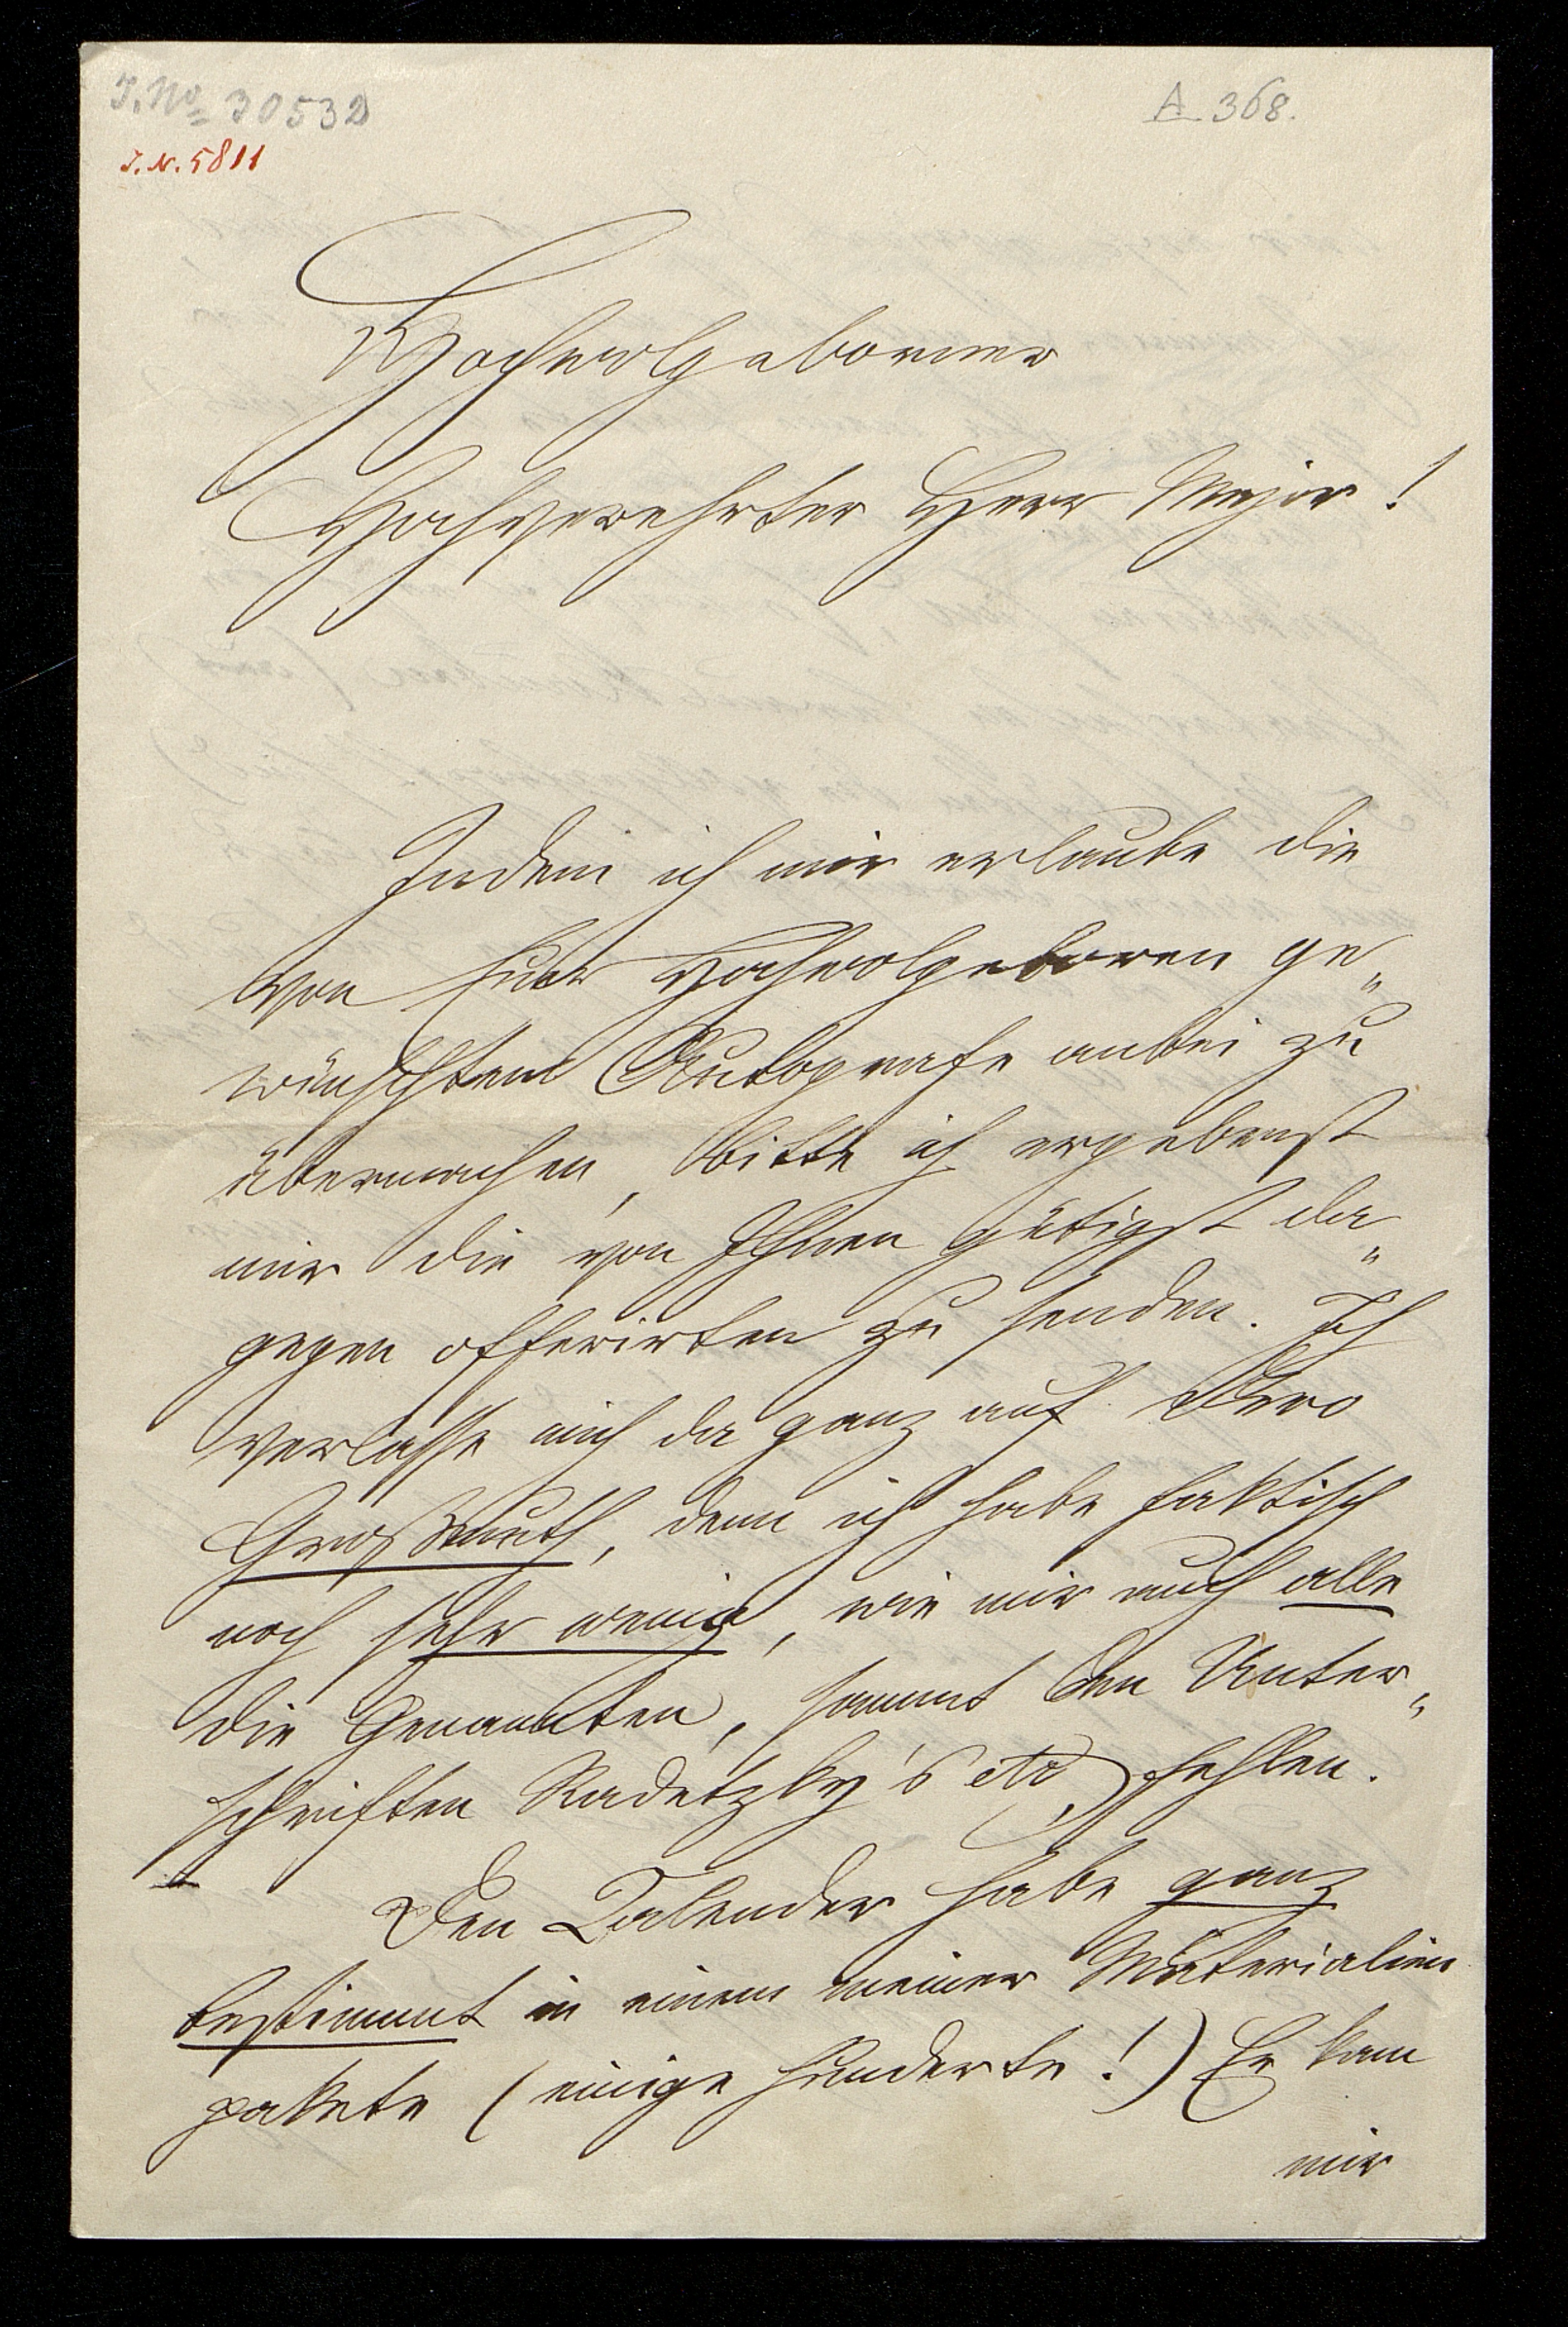 J. No 30532
A 368.
J. N. 5811
Hochwolgeborner
Hochverehrter Herr Major!
Indem ich mir erlaube die
von Euer Hochwolgeboren ge„
wünschten Autografe anbei zu
übermachen, bitte ich ergebenst
mir die von Ihnen gütigst da„
gegen offerirten zu senden. Ich
verlasse mich da ganz auf Dero
Großmuth, denn ich habe faktisch
noch sehr wenig, wie mir auch alle
die Genannten, sammt den Unter„
schriften Radetzky's etc fehlen.
Den Calender habe ganz
bestimmt in einem meiner Materialien
pakete (einige Hunderte!) Er kam
mir